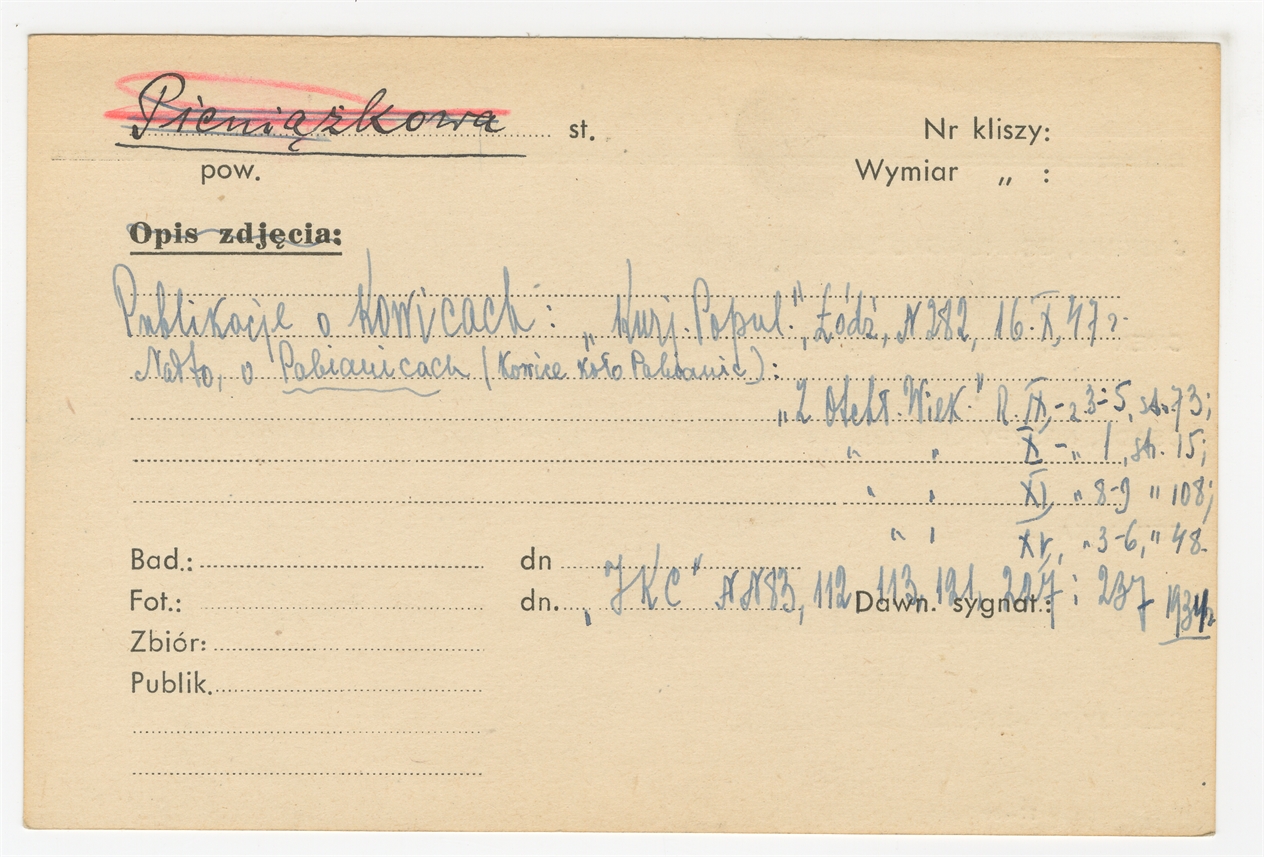 Pieniążkowa st. Nr kliszy:
pow. Wymiar „ :
Opis zdjęcia:
Publikacje o Kowicach: „Kurj. Popul.", Łódź, N 282, 16.X.47 r.
Nadto, o Pabianicach (Kowice koło Pabianic):
„Z Otchł. Wiek." R. IX, 3-5, st. 73;
" " X - „ 1, st. 15;
" " XI, „ 8-9 " 108;
" " XV, „ 3-6, " 48.
Bad.: dn
Fot.: dn. „JKC" NN 83, 112, 113, 191, 227 i 237 1934 r.
Dawn. sygnat.:
Zbiór:
Publik.